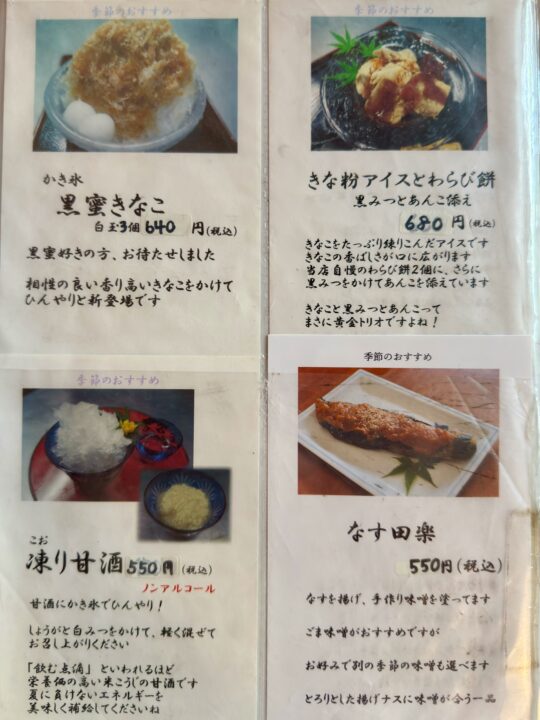 季節のおすすめ
かき氷
黒蜜きなこ
白玉3個 640 円(税込)
黒蜜好きの方、お待たせしました
相性の良い香り高いきなこをかけて
ひんやりと新登場です
季節のおすすめ
きな粉アイスとわらび餅
黒みつとあんこ添え
680 円(税込)
きなこをたっぷり練りこんだアイスです
きなこの香ばしさが口に広がります
当店自慢のわらび餅2個に、さらに
黒みつをかけてあんこを添えています
きなこと黒みつとあんこって
まさに黄金トリオですよね!
季節のおすすめ
こお
凍り甘酒 550 円(税込)
ノンアルコール
甘酒にかき氷でひんやり!
しょうがと白みつをかけて、軽く混ぜて
お召し上がりください
「飲む点滴」といわれるほど
栄養価の高い米こうじの甘酒です
夏に負けないエネルギーを
美味しく補給してくださいね
季節のおすすめ
なす田楽
550円(税込)
なすを揚げ、手作り味噌を塗ってます
ごま味噌がおすすめですが
お好みで別の季節の味噌も選べます
とろりとした揚げナスに味噌が合う一品